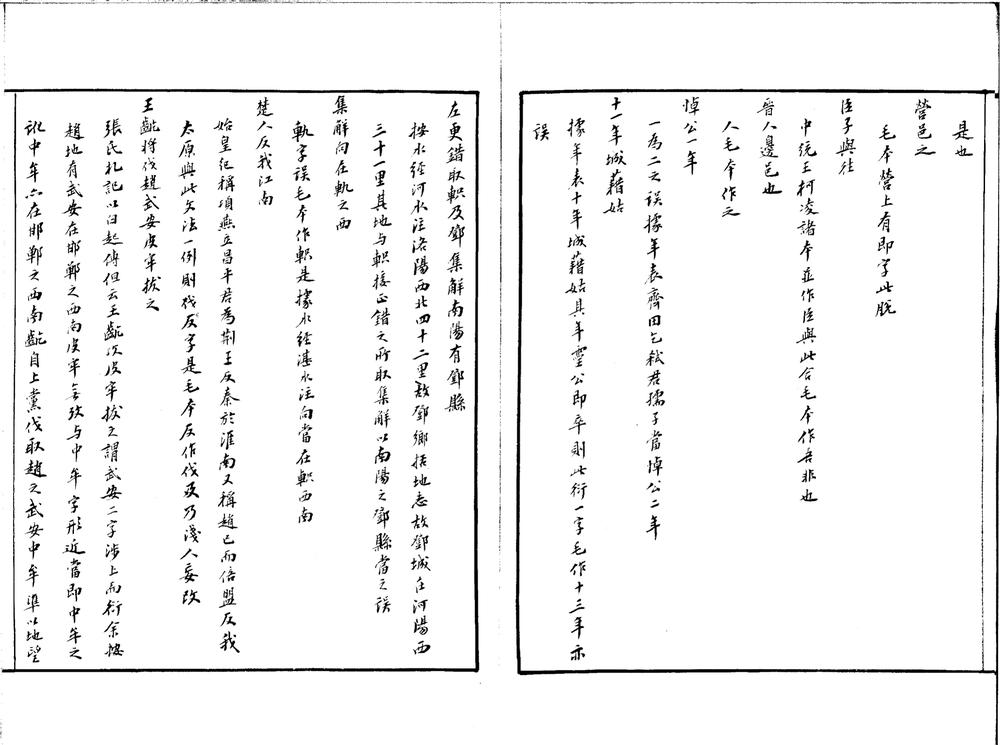 是也
營邑之
毛本營上有即字此脫
臣子與往
中統王柯凌諸本並作臣與此合毛本作吾非也
晉人邊邑也
人毛本作之
悼公一年
一為二之誤據年表齊田乞弒君孺子當悼公二年
十一年城藉姑
據年表十年城藉姑其年靈公即卒則此衍一字毛作十三年亦
誤
左更錯取軹及鄧集解南陽有鄧縣
按水經河水注洛陽西北四十二里故鄧鄉括地志故鄧城在河陽西
三十一里其地与軹接正錯之所取集解以南陽之鄧縣當之誤
集解向在軌之西
軌字誤毛本作軹是據水經湛水注向當在軹西南
楚人反我江南
始皇紀稱項燕立昌平君為荊王反秦於淮南又稱趙已而倍盟反我
太原與此文法一例則我反字是毛本反作伐及乃淺人妄改
王齕將伐趙武安皮牢拔之
張氏札記以白起傳但云王齕攻皮牢拔之謂武安二字涉上而衍余按
趙地有武安在邯鄲之西南皮牢無攷与中牟字形近當即中牟之
訛中牟六在邯鄲之西南齕自上黨伐取趙之武安中牟準以地望